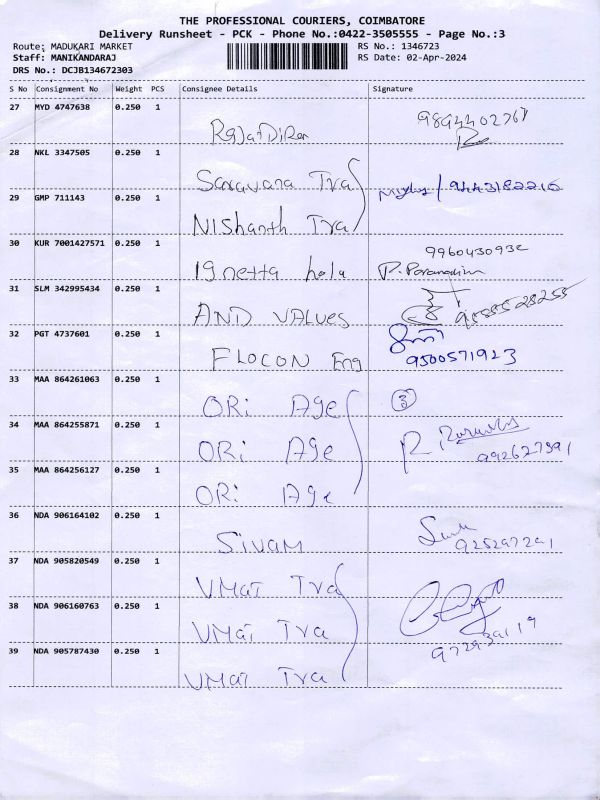 THE PROFESSIONAL COURIERS, COIMBATORE
Delivery Runsheet - PCK - Phone No.:0422-3505555 - Page No.:3
Route: MADUKARI MARKET RS No.: 1346723
Staff: MANIKANDARAJ RS Date: 02-Apr-2024
DRS No.: DCJB134672303
S No Consignment No Weight PCS Consignee Details Signature
27 MYD 4747638 0.250 1
28 NKL 3347505 0.250 1 Saravana Tra
29 GMP 711143 0.250 1 Nishanth Tra
30 KUR 7001427571 0.250 1 Ignetta hola P. Paranadim
31 SLM 342995434 0.250 1 AND VALUES 9585528255
32 PGT 4737601 0.250 1 FLOCON Eng 9500571923
33 MAA 864261063 0.250 1 ORi Age 3
34 MAA 864255871 0.250 1 ORi Age
35 MAA 864256127 0.250 1 ORi Age
36 NDA 906164102 0.250 1 Sivam
37 NDA 905820549 0.250 1 VMai Tra
38 NDA 906160763 0.250 1 VMai Tra
39 NDA 905787430 0.250 1 VMai Tra